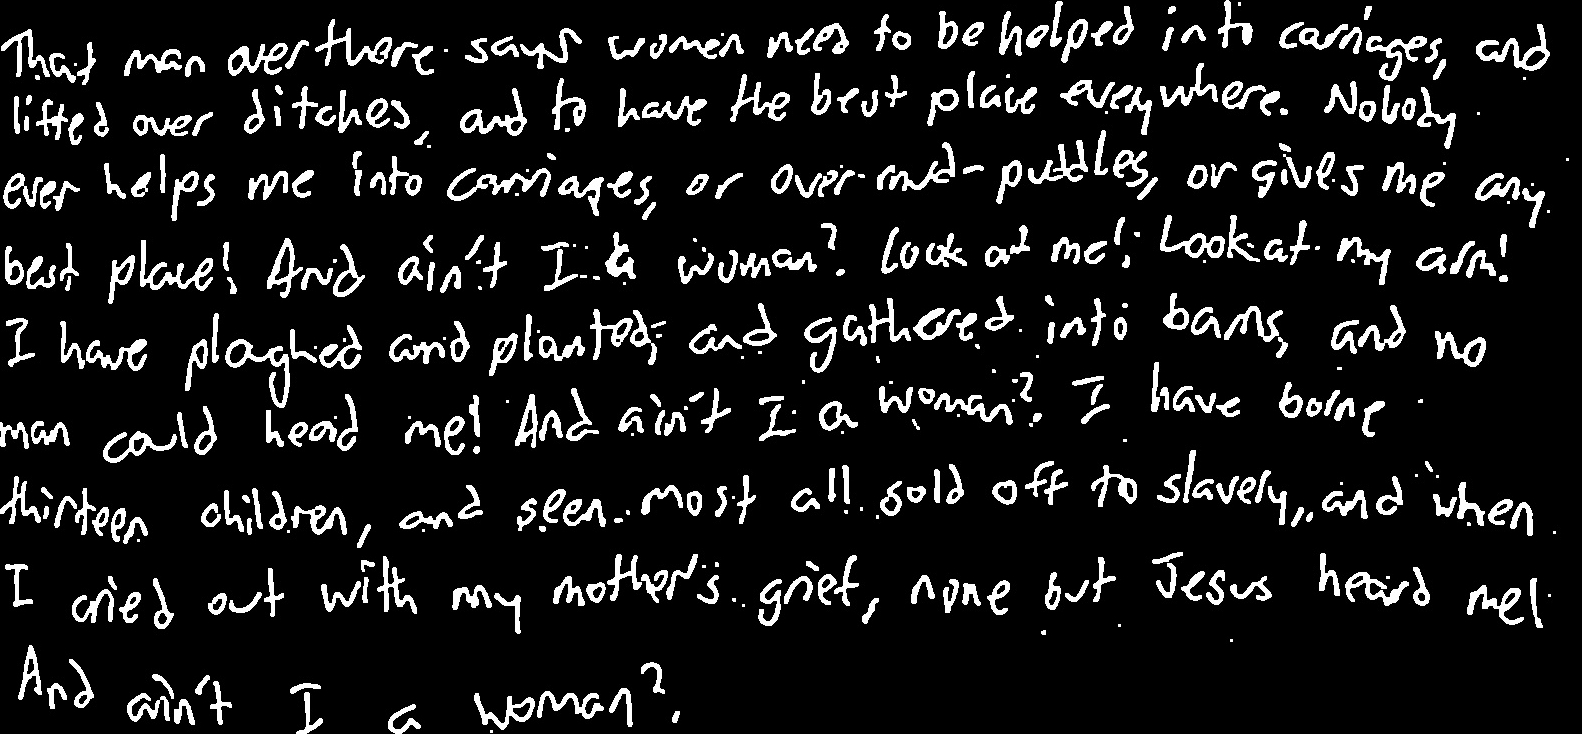 That man over there says women need to be helped into carriages, and
lifted over ditches, and to have the best place everywhere. Nobody
ever helps me into carriages, or over mud-puddles, or gives me any
best place! And ain't I a woman? Look at me! Look at my arm!
I have ploghed and planted, and gathered into barns, and no
man could head me! And ain't I a woman? I have borne
thirteen children, and seen most all sold off to slavery, and when
I cried out with my mother's grief, none but Jesus heard me!
And ain't I a woman?